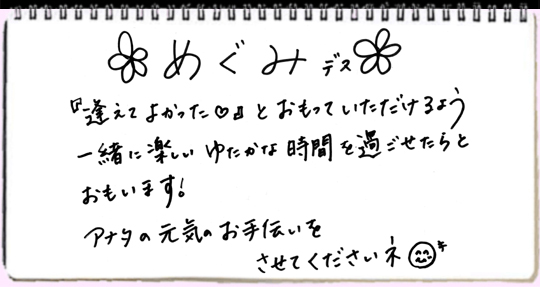 めぐみデス
『逢えてよかった♡』とおもっていただけるよう
一緒に楽しいゆたかな時間を過ごせたらと
おもいます!
アナタの元気のお手伝いを
させてくださいネ